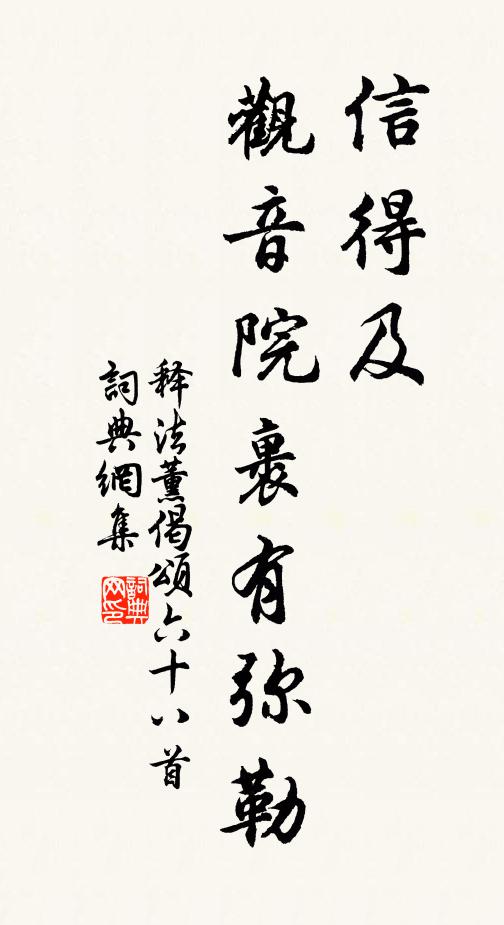 信得及
觀音院裹有弥勒
释法薰偈頌六十八首
詞典網集
詞典
网印